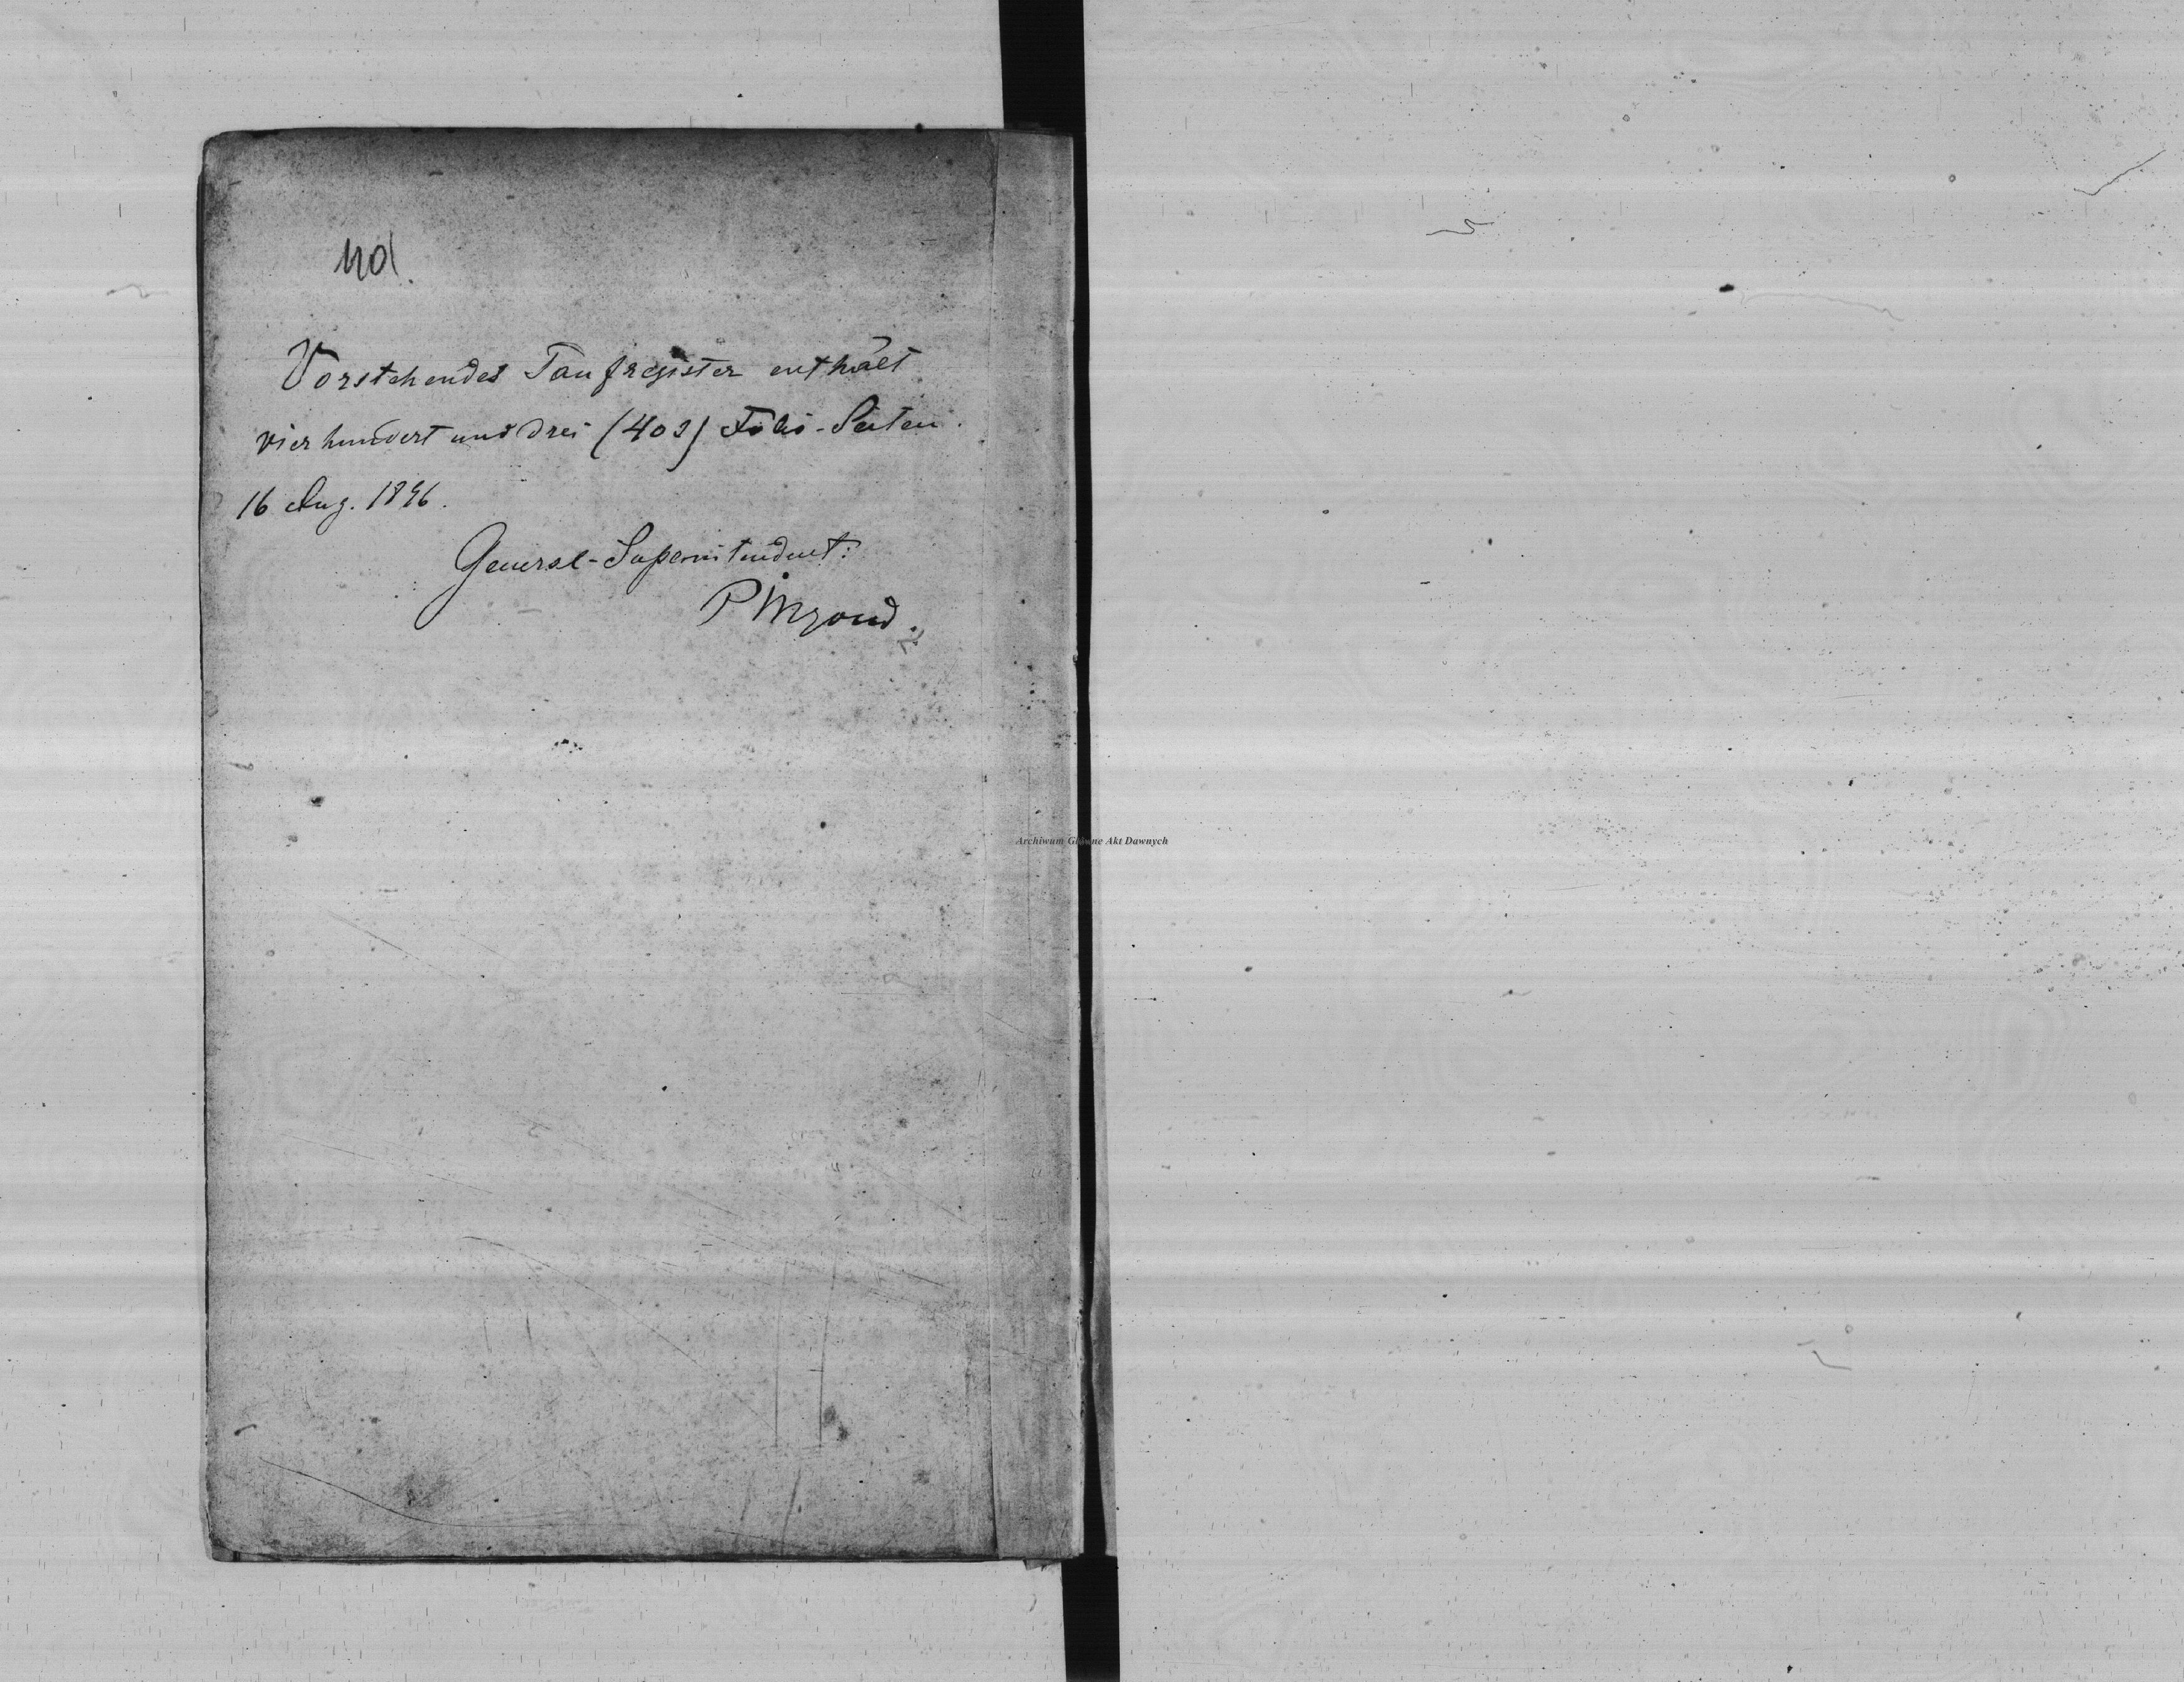 401
Vorstehendes Taufregister enthält
vierhundert und drei (403) Folio-Seiten.
16 Aug. 1896.
General-Superintendent:
Archiwum Główne Akt Dawnych